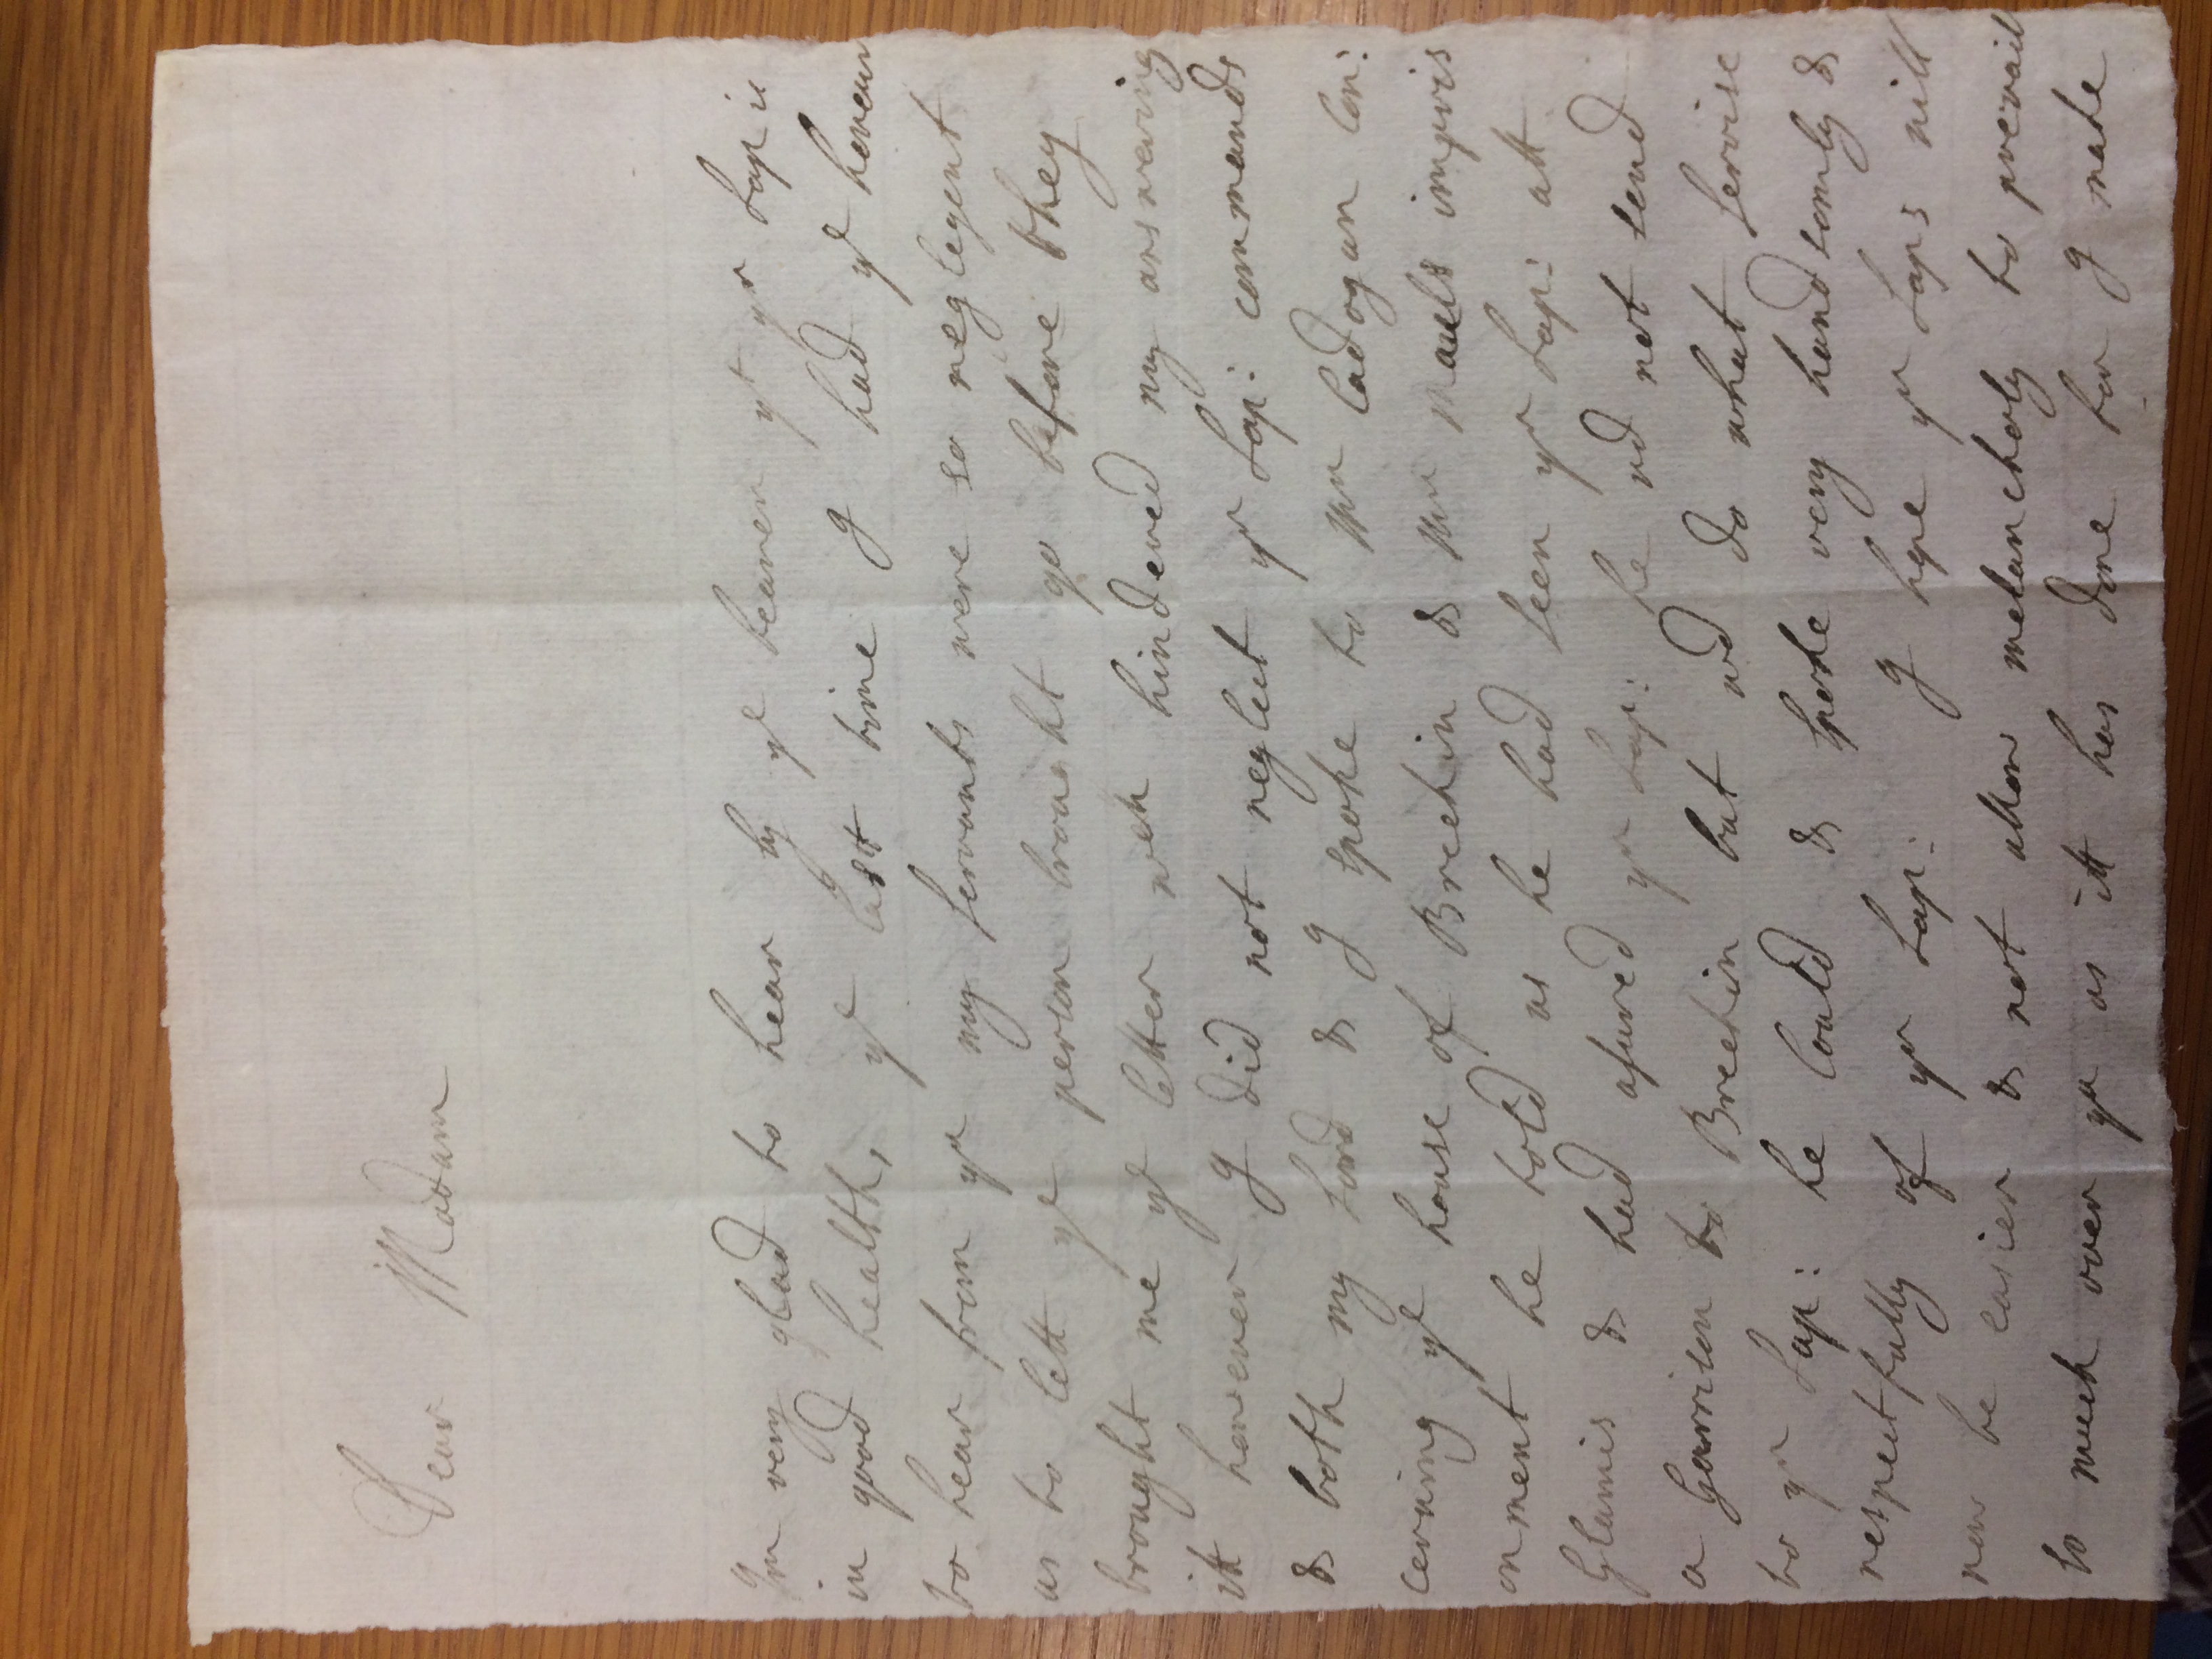 Dear Madam
I'm very glad to hear by ye bearer yt yr Lap is
in good health, ye last time I had ye honour
to hear from yu my servants were so neglegent
as to lett ye person brought go before they
brought me ye letter wch hindered my answering
itt however I did not neglect yr Lap: commands
& both my Lord & I spoke to Mr Cadogan Con:
cerning ye house of Brechin & Mr Mauls impris
onment he told us he had seen yr Lap: att
Glamis & had asured yr Lap: he wd not send
a Garrison to Brechin but wd do what servise
to yr Lap: he Could & spoke very handsomly &
respectfully of yr Lap: I hope yr Laps will
now be easier & not allow melancholy to prevail
so much over yu as itt has done for I make